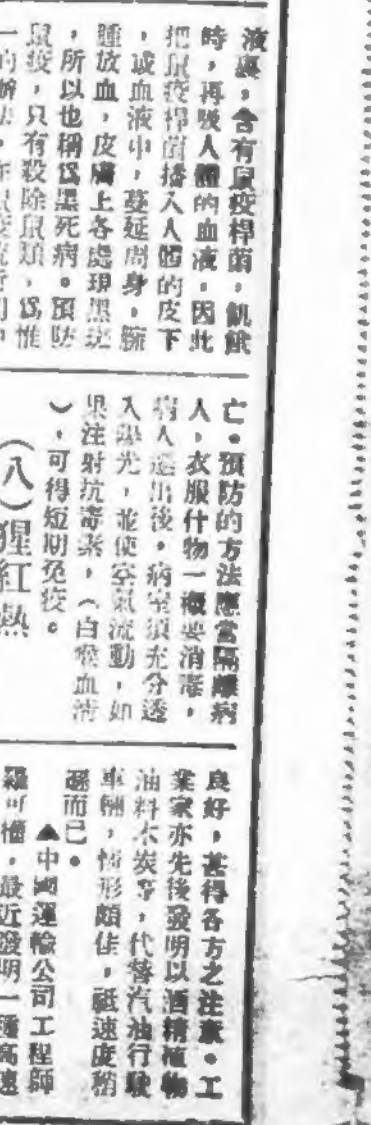 液裏，含有鼠疫桿菌，飢餓
時，再吸人體的血液，因此
把鼠疫桿菌播入人體的皮下
，或血液中，蔓延周身，腕
腫放血，皮膚上各處現黑斑
，所以也稱爲黑死病。預防
鼠疫，只有殺除鼠類，爲惟
一的辦法，在鼠疫流行期中
亡。預防的方法應當隔離病
人，衣服什物一概要消毒，
病人遷出後，病室須充分透
入陽光，並使空氣流動，如
果注射抗毒素，（白喉血清
），可得短期免疫。
（八）猩紅熱
良好，甚得各方之注意。工
業家亦先後發明以酒精植物
油料木炭等，代替汽油行駛
車輛，情形頗佳，祇速度稍
遜而已。
▲中國運輸公司工程師
羅可權，最近發明一種高速